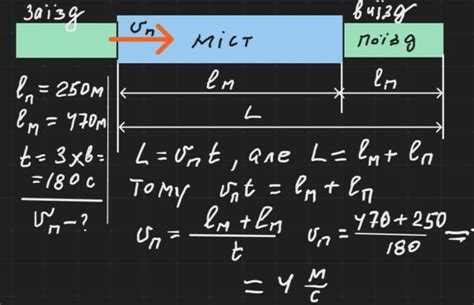 Заїзд
Виїзд
υп
міст
поїзд
lм
lп
L
lп = 250м
lм = 470м
t = 3хв =
= 180 с
υп – ?
L = υп t, але L = lм + lп
Тому υп t = lм + lп
υп = (lм + lп) / t υп = (470 + 250) / 180 =
= 4 м/с